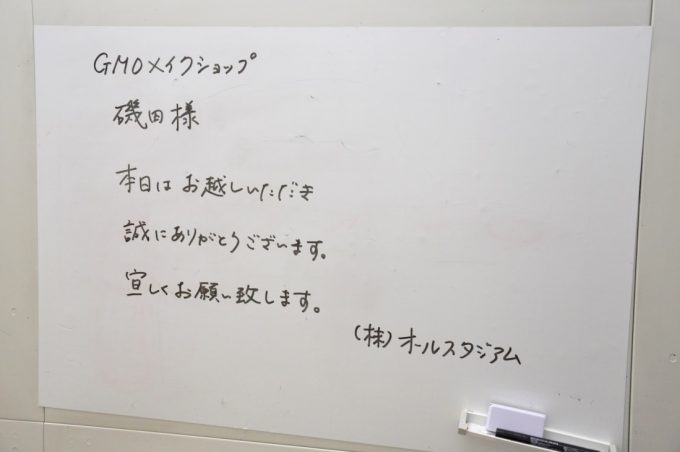 GMOメイクショップ
磯田様
本日はお越しいただき
誠にありがとうございます。
宜しくお願い致します。
(株)オールスタジアム